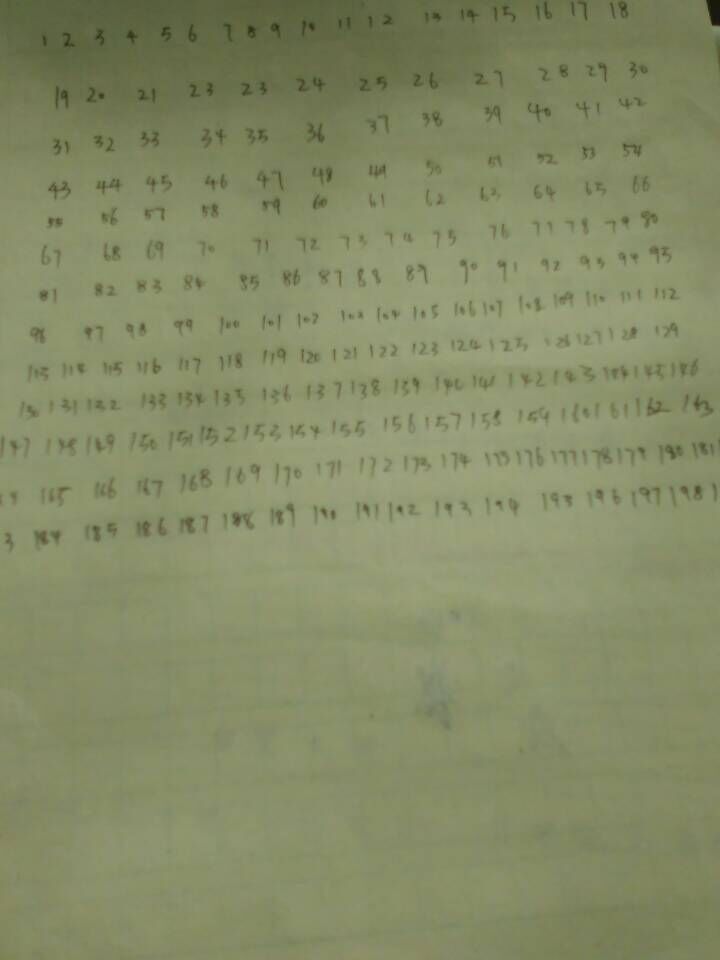 1 2 3 4 5 6 7 8 9 10 11 12 13 14 15 16 17 18
19 20 21 23 23 24 25 26 27 28 29 30
31 32 33 34 35 36 37 38 39 40 41 42
43 44 45 46 47 48 49 50 51 52 53 54
55 56 57 58 59 60 61 62 63 64 65 66
67 68 69 70 71 72 73 74 75 76 77 78 79 80
81 82 83 84 85 86 87 88 89 90 91 92 93 94 95
96 97 98 99 100 101 102 103 104 105 106 107 108 109 110 111 112
113 114 115 116 117 118 119 120 121 122 123 124 125 126 127 128 129
130 131 132 133 134 135 136 137 138 139 140 141 142 143 144 145 146
147 148 149 150 151 152 153 154 155 156 157 158 159 160 161 162 163
165 166 167 168 169 170 171 172 173 174 175 176 177 178 179 180 181
3 184 185 186 187 188 189 190 191 192 193 194 195 196 197 198